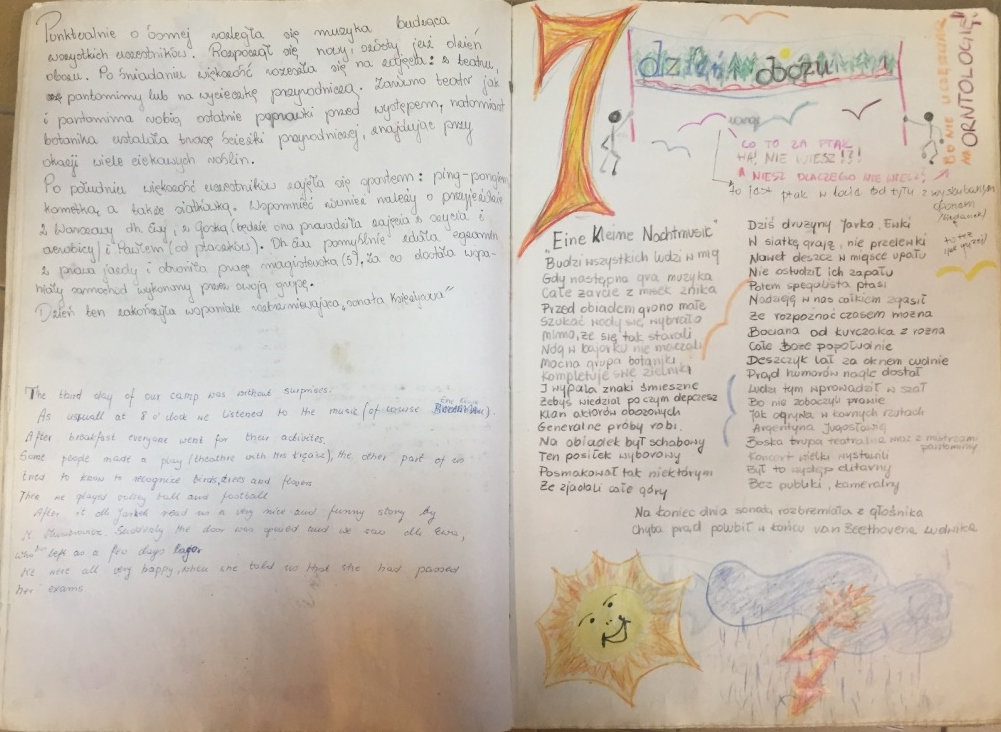 Punktualnie o ósmej rozległa się muzyka budząca
wszystkich uczestników. Rozpoczął się nowy, szósty już dzień
obozu. Po śniadaniu większość rozeszła się na zajęcia: z teatru,
pantomimy lub na wycieczkę przyrodniczą. Zarówno teatr jak
i pantomima robią ostatnie poprawki przed występem, natomiast
botanika ustalała trasę ścieżki przyrodniczej, znajdując przy
okazji wiele ciekawych roślin.
Po południu większość uczestników zajęła się sportem: ping-pongiem,
kometką, a także siatkówką. Wspomnieć również należy o przyjeździe
z Warszawy dh Ewy, z Gośką (będzie ona prowadziła zajęcia z
aerobicy) i (od ptaków). Dh Ewa pomyślnie zdała egzamin
z prawa jazdy i obroniła pracę magisterską (5), za co dostała wspa-
niały samochód wykonany przez swoją grupę.
Dzień ten zakończyła wspaniale rozbrzmiewająca „sonata Księżycowa"
The third day of our camp was without surprises.
As usuall at 8 o'clock we listened to the music (of course).
After breakfast everyone went for their activites.
Some people made a play (theathre with), the other part of us
tried to know to recognize birds, trees and flowers
Then we played volley ball and football
After it dh Jarek read us a very nice and funny story by
Suddenly the door was opened and we saw dh Ewa,
who left us a few days
We were all very happy, when she told us that she had passed
her exams.
7
dzień obozu
uwaga
CO TO ZA PTAK
HA! NIE WIESZ!!!
A WIESZ DLACZEGO NIE WIESZ?
BO NIE UCZĘSZCZASZ
NA ORNTOLOGIĘ!
to jest ptak w locie od tyłu z
"Eine Kleine Nachtmusic"
Budzi wszystkich ludzi w mig
Gdy następna gra muzyka
Całe żarcie z misek znika
Przed obiadem grono małe
Szukać wody się wybrało
Mimo, że się tak starali
Nóg w bajorku nie moczali
Mocna grupa botaniki
Kompletuje swe zielniki
I wypala znaki śmieszne
Żebyś wiedział po czym depczesz
Klan aktorów obozowych
Generalne próby robi.
Na obiadek był schabowy
Ten posiłek wyborowy
Posmakował tak niektórym
Że zjadali całe góry
Dziś drużyny Jarka, Ewki
W siatkę grają, nie przelewki
Nawet deszcz w miejsce upału
Nie ostudził ich zapału
Potem specjalista ptasi
Nadzieję w nas całkiem zgasił
Że rozpoznać czasem można
Bociana od kurczaka z rożna
Całe Boże popołudnie
Deszczyk lał za oknem cudnie
Prąd humorów nagle dostał
Ludzi tym wprowadził w szał
Bo nie zobaczyli prawie
Jak ogrywa w karnych rzutach
Argentyna Jugosławię
Boska trupa teatralna wraz z mistrzami pantomimy
Koncert wielki wystawili
Był to występ elitarny
Bez publiki, kameralny
Na koniec dnia sonata rozbrzmiała z głośnika
Chyba prąd polubił w końcu van Beethovena Ludwika